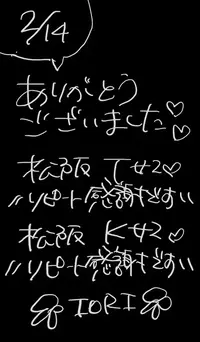 2/14
ありがとう
ございました♡♡
松阪 Tサ2♡
〃リピート感謝です〃
松阪 Kサ2♡
〃リピート感謝です〃
IORI